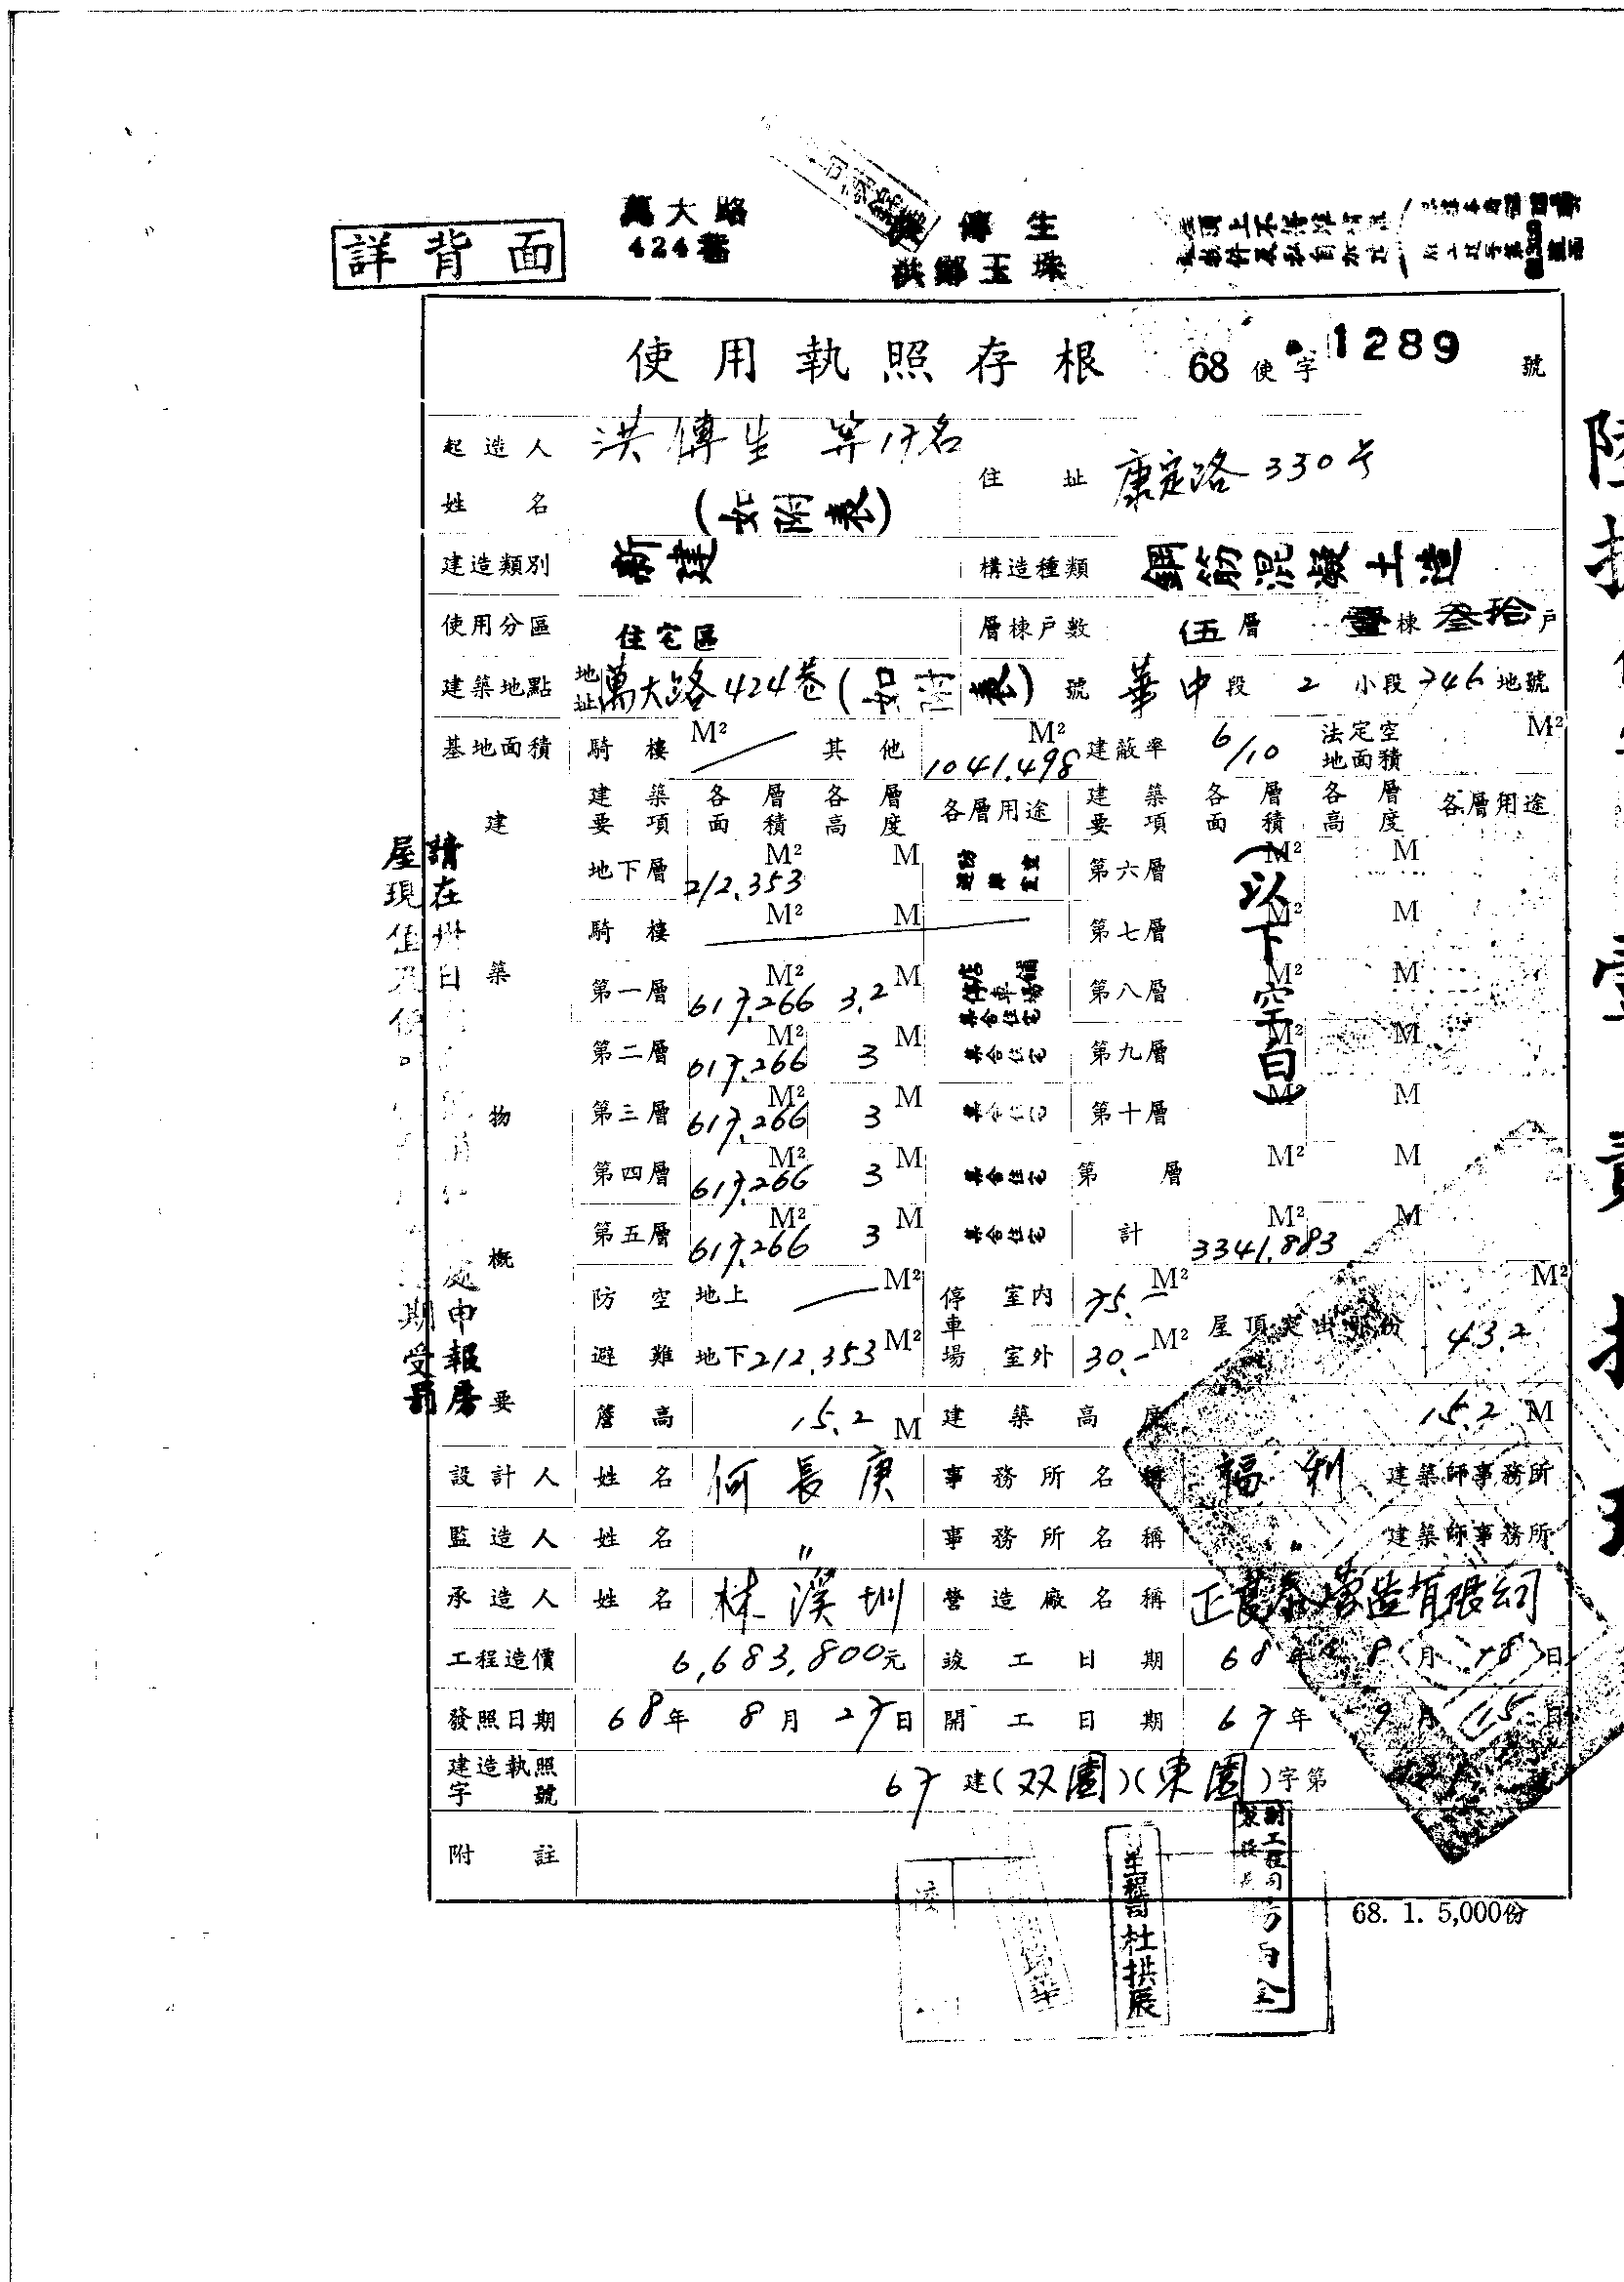 萬大路
424巷
傳生
洪鄭玉珠
詳背面
使用執照存根 68使字 1289 號
起造人姓名 洪傳生 等17名 (如附表) 住址 康定路330号
建造類別 新建 構造種類 鋼筋混凝土造
使用分區 住宅區 層棟戶數 伍層 壹棟 叁拾戶
建築地點 地址 萬大路424巷(如附表)號 華中段 2小段746地號
基地面積 騎樓 M² 其他 1041.498 M² 建蔽率 6/10 法定空地面積 M²
建築物概要
建築要項 各層面積 各層高度 各層用途 建築要項 各層面積 各層高度 各層用途
地下層 212.353 M² M 第六層 M² M
騎樓 M² M 第七層 M² M
第一層 617.266 M² 3.2 M 店舖 停車場 集合住宅 第八層 M² M
第二層 617.266 M² 3 M 集合住宅 第九層 M² M
第三層 617.266 M² 3 M 集合住宅 第十層 M² M
第四層 617.266 M² 3 M 集合住宅 第 層 M² M
第五層 617.266 M² 3 M 集合住宅 計 3341.883 M² M
(以下空白)
防空避難 地上 M² 停車場 室內 75.- M² 屋頂突出部份 43.2 M²
地下 212.353 M² 室外 30.- M²
簷高 15.2 M 建築高度 15.2 M
設計人 姓名 何長庚 事務所名稱 福利 建築師事務所
監造人 姓名 〃 事務所名稱 〃 建築師事務所
承造人 姓名 林溪圳 營造廠名稱 正長泰營造有限公司
工程造價 6,683,800元 竣工日期 68年 8月 18日
發照日期 68年 8月 27日 開工日期 67年 9月 15日
建造執照字號 67建(双園)(東園)字第
附註
68. 1. 5,000份
杜拱辰